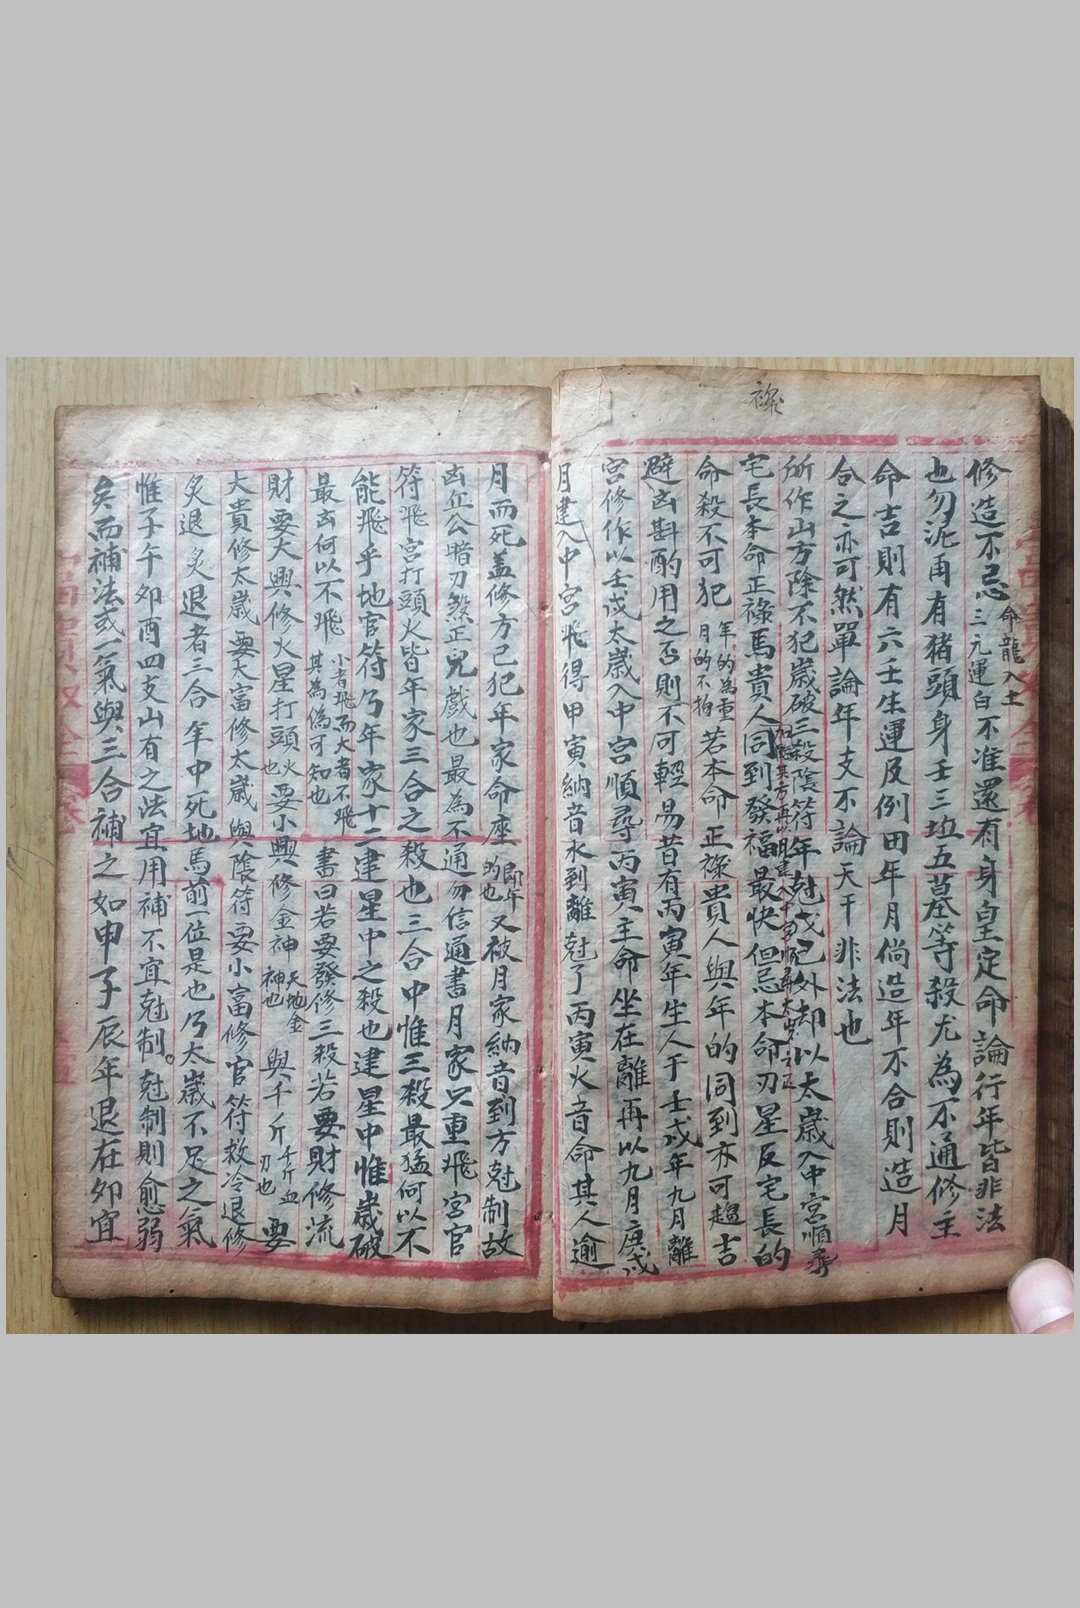 祿
修造不忌命龍入土三元運白不准還有身皇定命論行年皆非法
也勿泥再有猪頭身壬三坵五墓等殺尤為不通修主
命吉則有六壬生運及例田年月倘造年不合則造月
合之亦可然單論年支不論天干非法也
所作山方除不犯歲破三殺陰符年尅戊己外却以太歲入中宮順尋
宅長本命正祿馬貴人同到發福最快但忌本命刃星反宅長的
命殺不可犯年的為重月的不拍若本命正祿貴人與年的同到亦可趨吉
避凶斟酌用之否則不可輕易昔有丙寅年生人于壬戌年九月離
宮修作以壬戌太歲入中宮順尋丙寅主命坐在離再以九月庚戌
月建入中宮飛得甲寅納音水到離尅了丙寅火音命其人逾
月而死盖修方已犯年家命座即年的也又被月家納音到方尅制故
凶丘公暗刀煞正兒戲也最為不通勿信通書月家只重飛宮官
符飛宮打頭火皆年家三合之殺也三合中惟三殺最猛何以不
能飛乎地官符乃年家十二建星中之殺也建星中惟歲破
最凶何以不飛小者飛而大者不飛其為偽可知也書曰若要發修三殺若要財修流
財要大興修火星打頭火也要小興修金神天地金神也與千斤千斤血刃也要
大貴修太歲要大富修太歲與陰符要小富修官符救冷退修
炙退炙退者三合年中死地馬前一位是也乃太歲不足之氣
惟子午卯酉四支山有之法宜用補不宜尅制。尅制則愈弱
矣而補法或一氣與三合補之如申子辰年退在卯宜